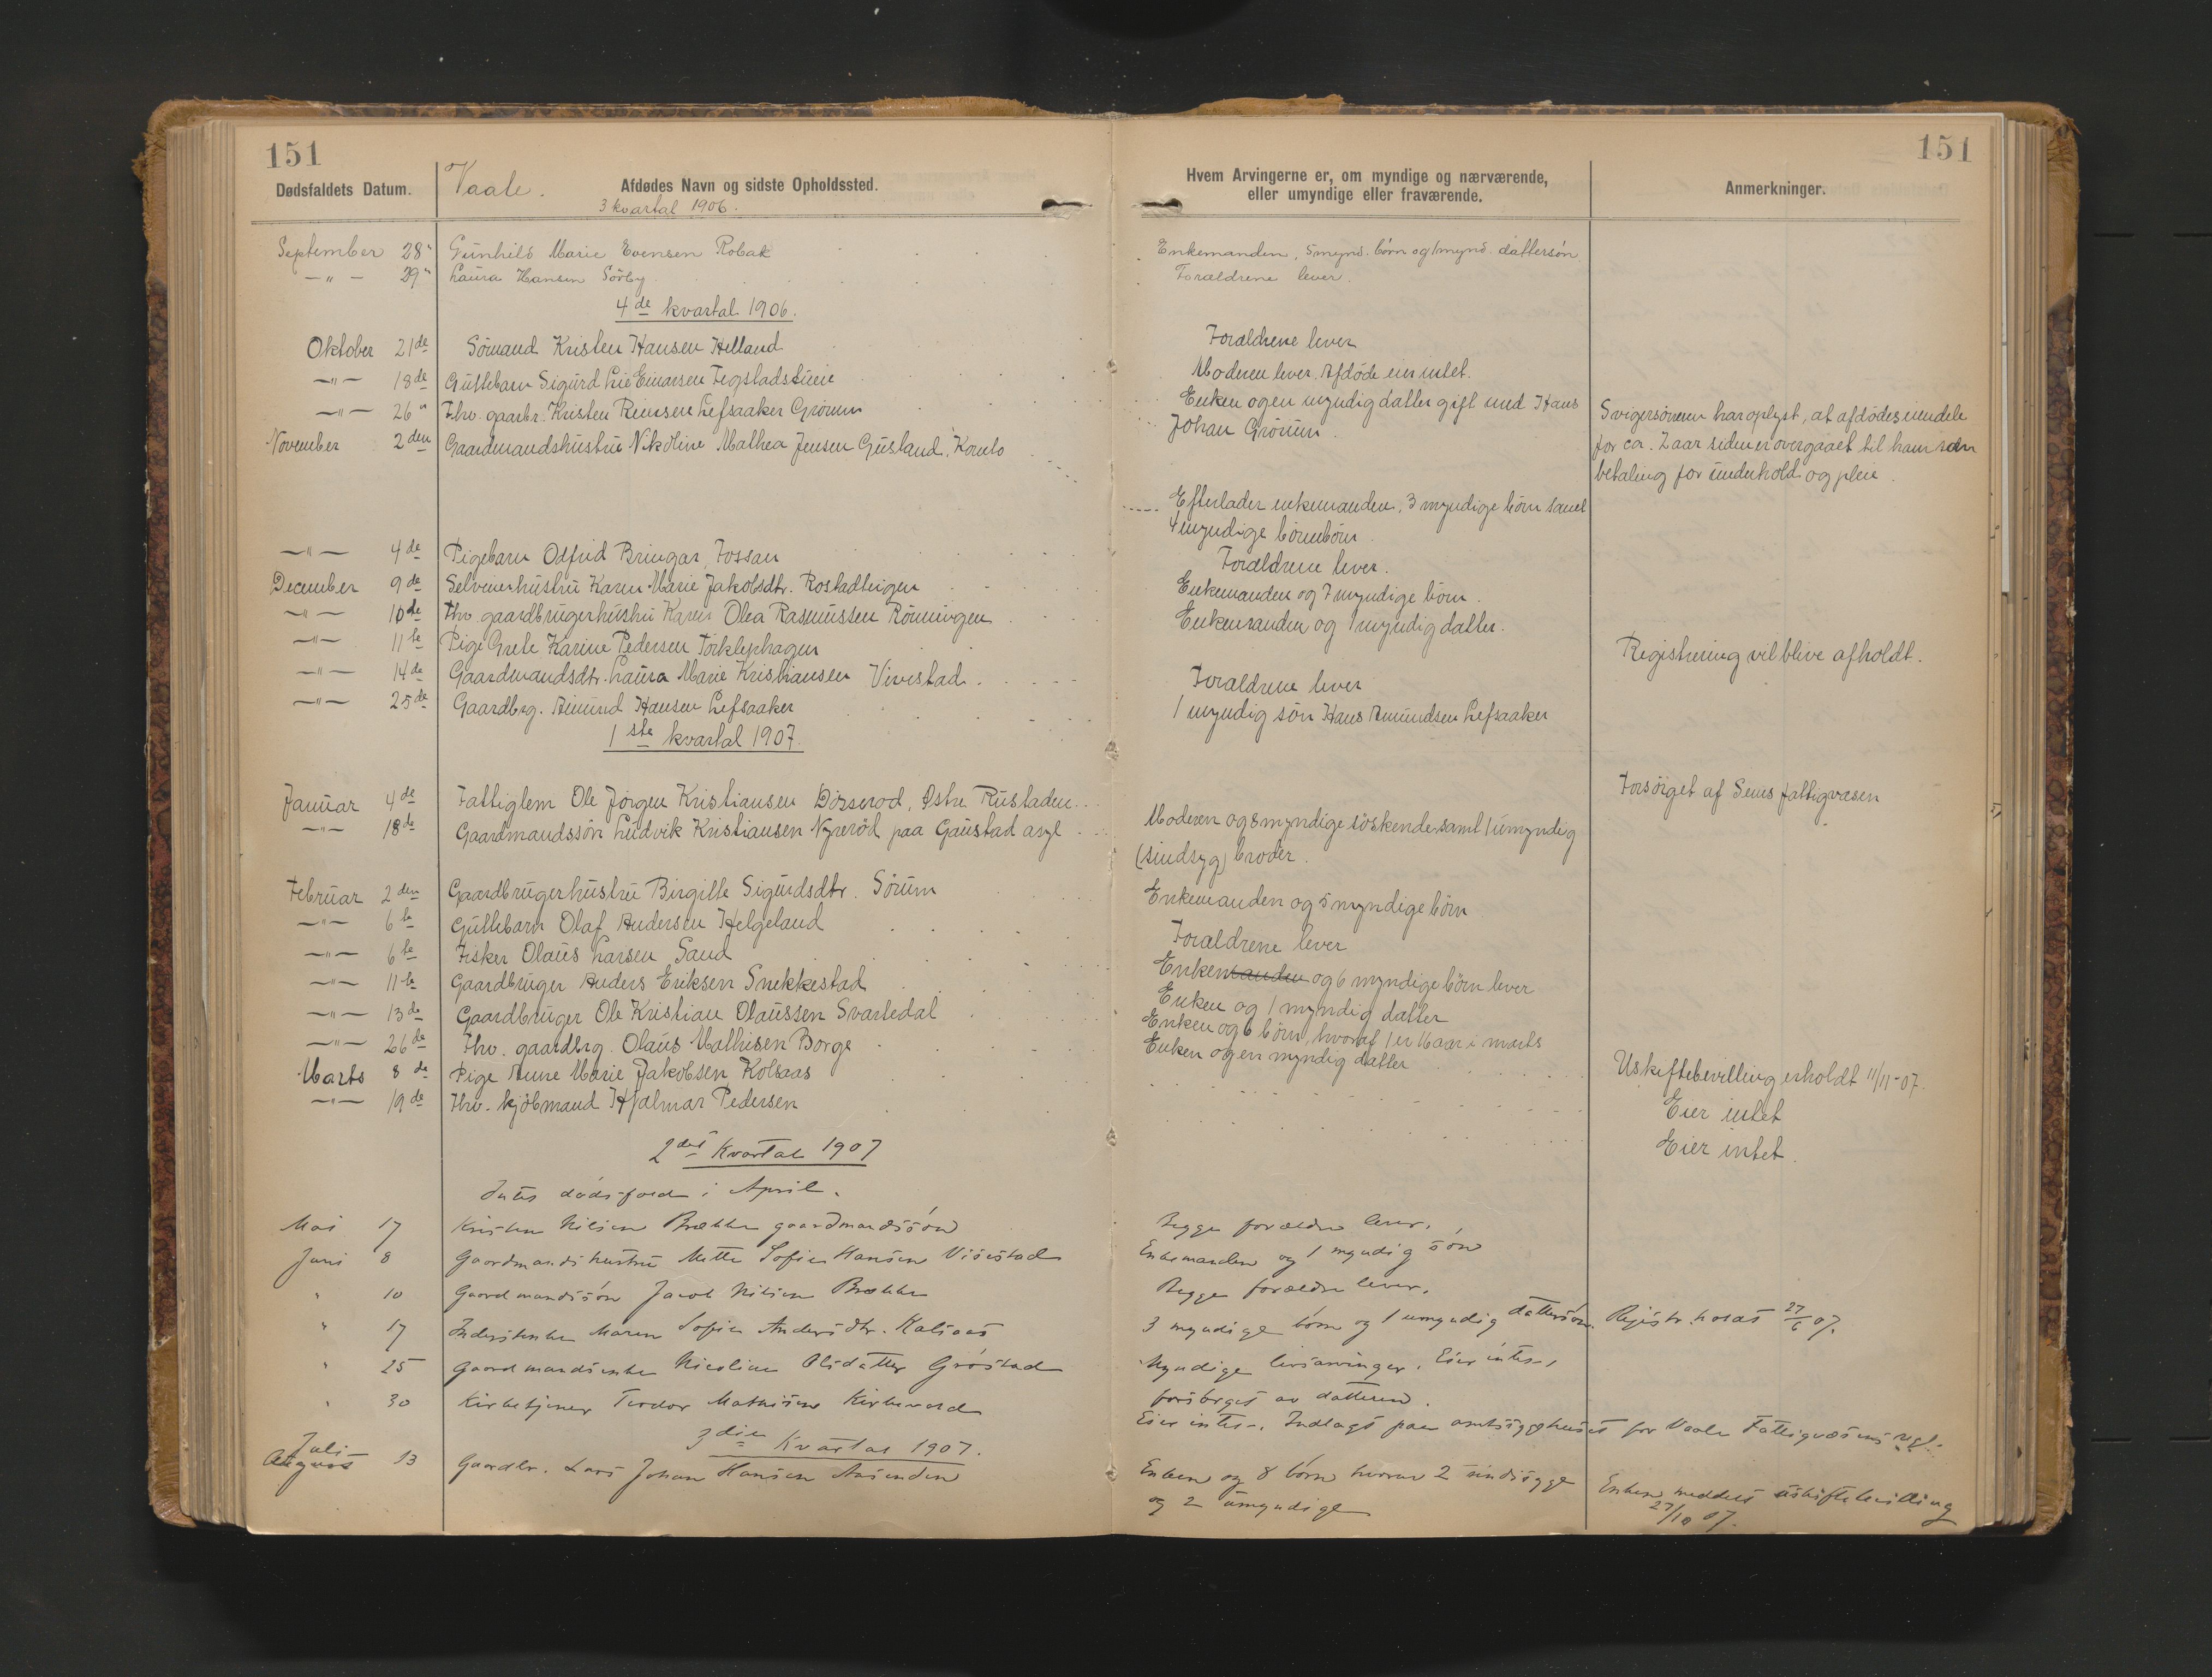 151
151
Dødsfaldets Datum.
Vaale.
Afdødes Navn og sidste Opholdssted.
Hvem Arvingerne er, om myndige og nærværende,
eller umyndige eller fraværende.
Anmerkninger.
3 kvartal 1906.
September 28" Gunhild Marie Evensen Robak Enkemanden, 5 mynd. børn og 1 mynd. dattersøn.
—"— 29" Laura Hansen Sörby Forældrene lever.
4de kvartal 1906.
Oktober 21de Sömand Kristen Hansen Helland Forældrene lever
—"— 18de Guttebarn Sigurd Lie Einarsen Moderen lever. Afdöde eier intet.
—"— 26" Fhv. gaardbr. Kristen Lefsaaker Grörum Enken og en myndig datter gift med Hans
Johan Grörum.
Svigersönnen har oplyst, at afdödes eiendele
for ca. 2 aar siden er overgaaet til ham som
betaling for underhold og pleie.
November 2den Gaardmandshustru Nikoline Mathea Jensen Gusland, Komlo
Efterlader enkemanden, 3 myndige börn samt
4 myndige börnebörn.
—"— 4de Pigebarn Odfrid Bringar, Fossan Forældrene lever.
December 9de Selveierhustru Karen Marie Jakobsdtr. Rostadteigen Enkemanden og 7 myndige börn.
—"— 10de Fhv. gaardbrugerhustru Karen Olea Rasmussen Rönningen Enkemanden og 1 myndig datter.
—"— 11te Pige Grete Karine Pedersen Torklephagen Registrering vil blive afholdt.
—"— 14de Gaardmandsdtr. Laura Marie Kristiansen Vivestad Forældrene lever
—"— 25de Gaardbrg. Amund Hansen Lefsaaker 1 myndig sön Hans Amundsen Lefsaaker
1ste kvartal 1907.
Januar 4de Fattiglem Ole Jörgen Kristiansen Dösserod, Østre Rustaden Forsörget af Sems fattigvæsen
—"— 18de Gaardmandssön Ludvik Kristiansen Nyreröd paa Gaustad asyl Moderen og 8 myndige söskende samt 1 umyndig
(sindsyg) broder.
Februar 2den Gaardbrugerhustru Birgitte Sigurdsdtr. Sörum Enkemanden og 5 myndige börn
—"— 6te Guttebarn Olaf Andersen Helgeland Forældrene lever
—"— 6te Fisker Olaus Larsen Sand Enkemanden og 6 myndige börn lever
—"— 11te Gaardbruger Anders Eriksen Snekkestad Enken og 1 myndig datter
—"— 13de Gaardbruger Ole Kristian Olaussen Svartedal Enken og 6 börn, hvoraf 1 er 16 aar i marts
—"— 26de Fhv. gaardbrg. Olaus Mathisen Borge Enken og en myndig datter Uskiftebevilling erholdt 11/11-07.
Marts 8de Pige Anne Marie Jakobsen Kolsaas Eier intet
—"— 19de Fhv. kjöbmand Hjalmar Pedersen Eier intet.
2det Kvartal 1907
Intet dödsfald i April.
Mai 17 Kristen Nilsen Brække gaardmandssön Begge forældre lever.
Juni 8 Gaardmandshustru Mette Sofie Hansen Vivestad Enkemanden og 1 myndig sön
" 10 Gaardmandssön Jacob Nilsen Brække Begge forældre lever.
" 17 Inderstenke Maren Sofie Andersdtr. Kalsaas 3 myndige börn og 1 umyndig dattersön. Registr. holdt 27/6 07.
" 25 Gaardmandsenke Nicoline Olsdatter Gröstad Myndige livsarvinger. Eier intet,
forsörget av datteren.
" 30 Kirketjener Teodor Mathisen Kirkevold Eier intet. Indlagt paa amtssygehuset for Vaale Fattigvæsens regn.
3die Kvartal 1907.
Juli —
August 13 Gaardbr. Lars Johan Hansen Aasenden Enken og 8 börn hvorav 2 sindssyge
og 2 umyndige
Enken meddelt uskiftebevilling
27/10 07.